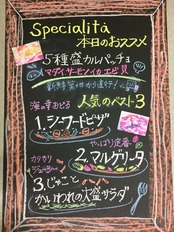 Specialità
本日のおススメ
5種盛カルパッチョ
マダイ サーモン イカ エビ 貝
新鮮
海の幸おどる
人気のベスト3
1.シーフードピザ
やっぱり定番
2.マルゲリータ
カリカリ
ジューシー
3.じゃこと
かいわれの大盛サラダ